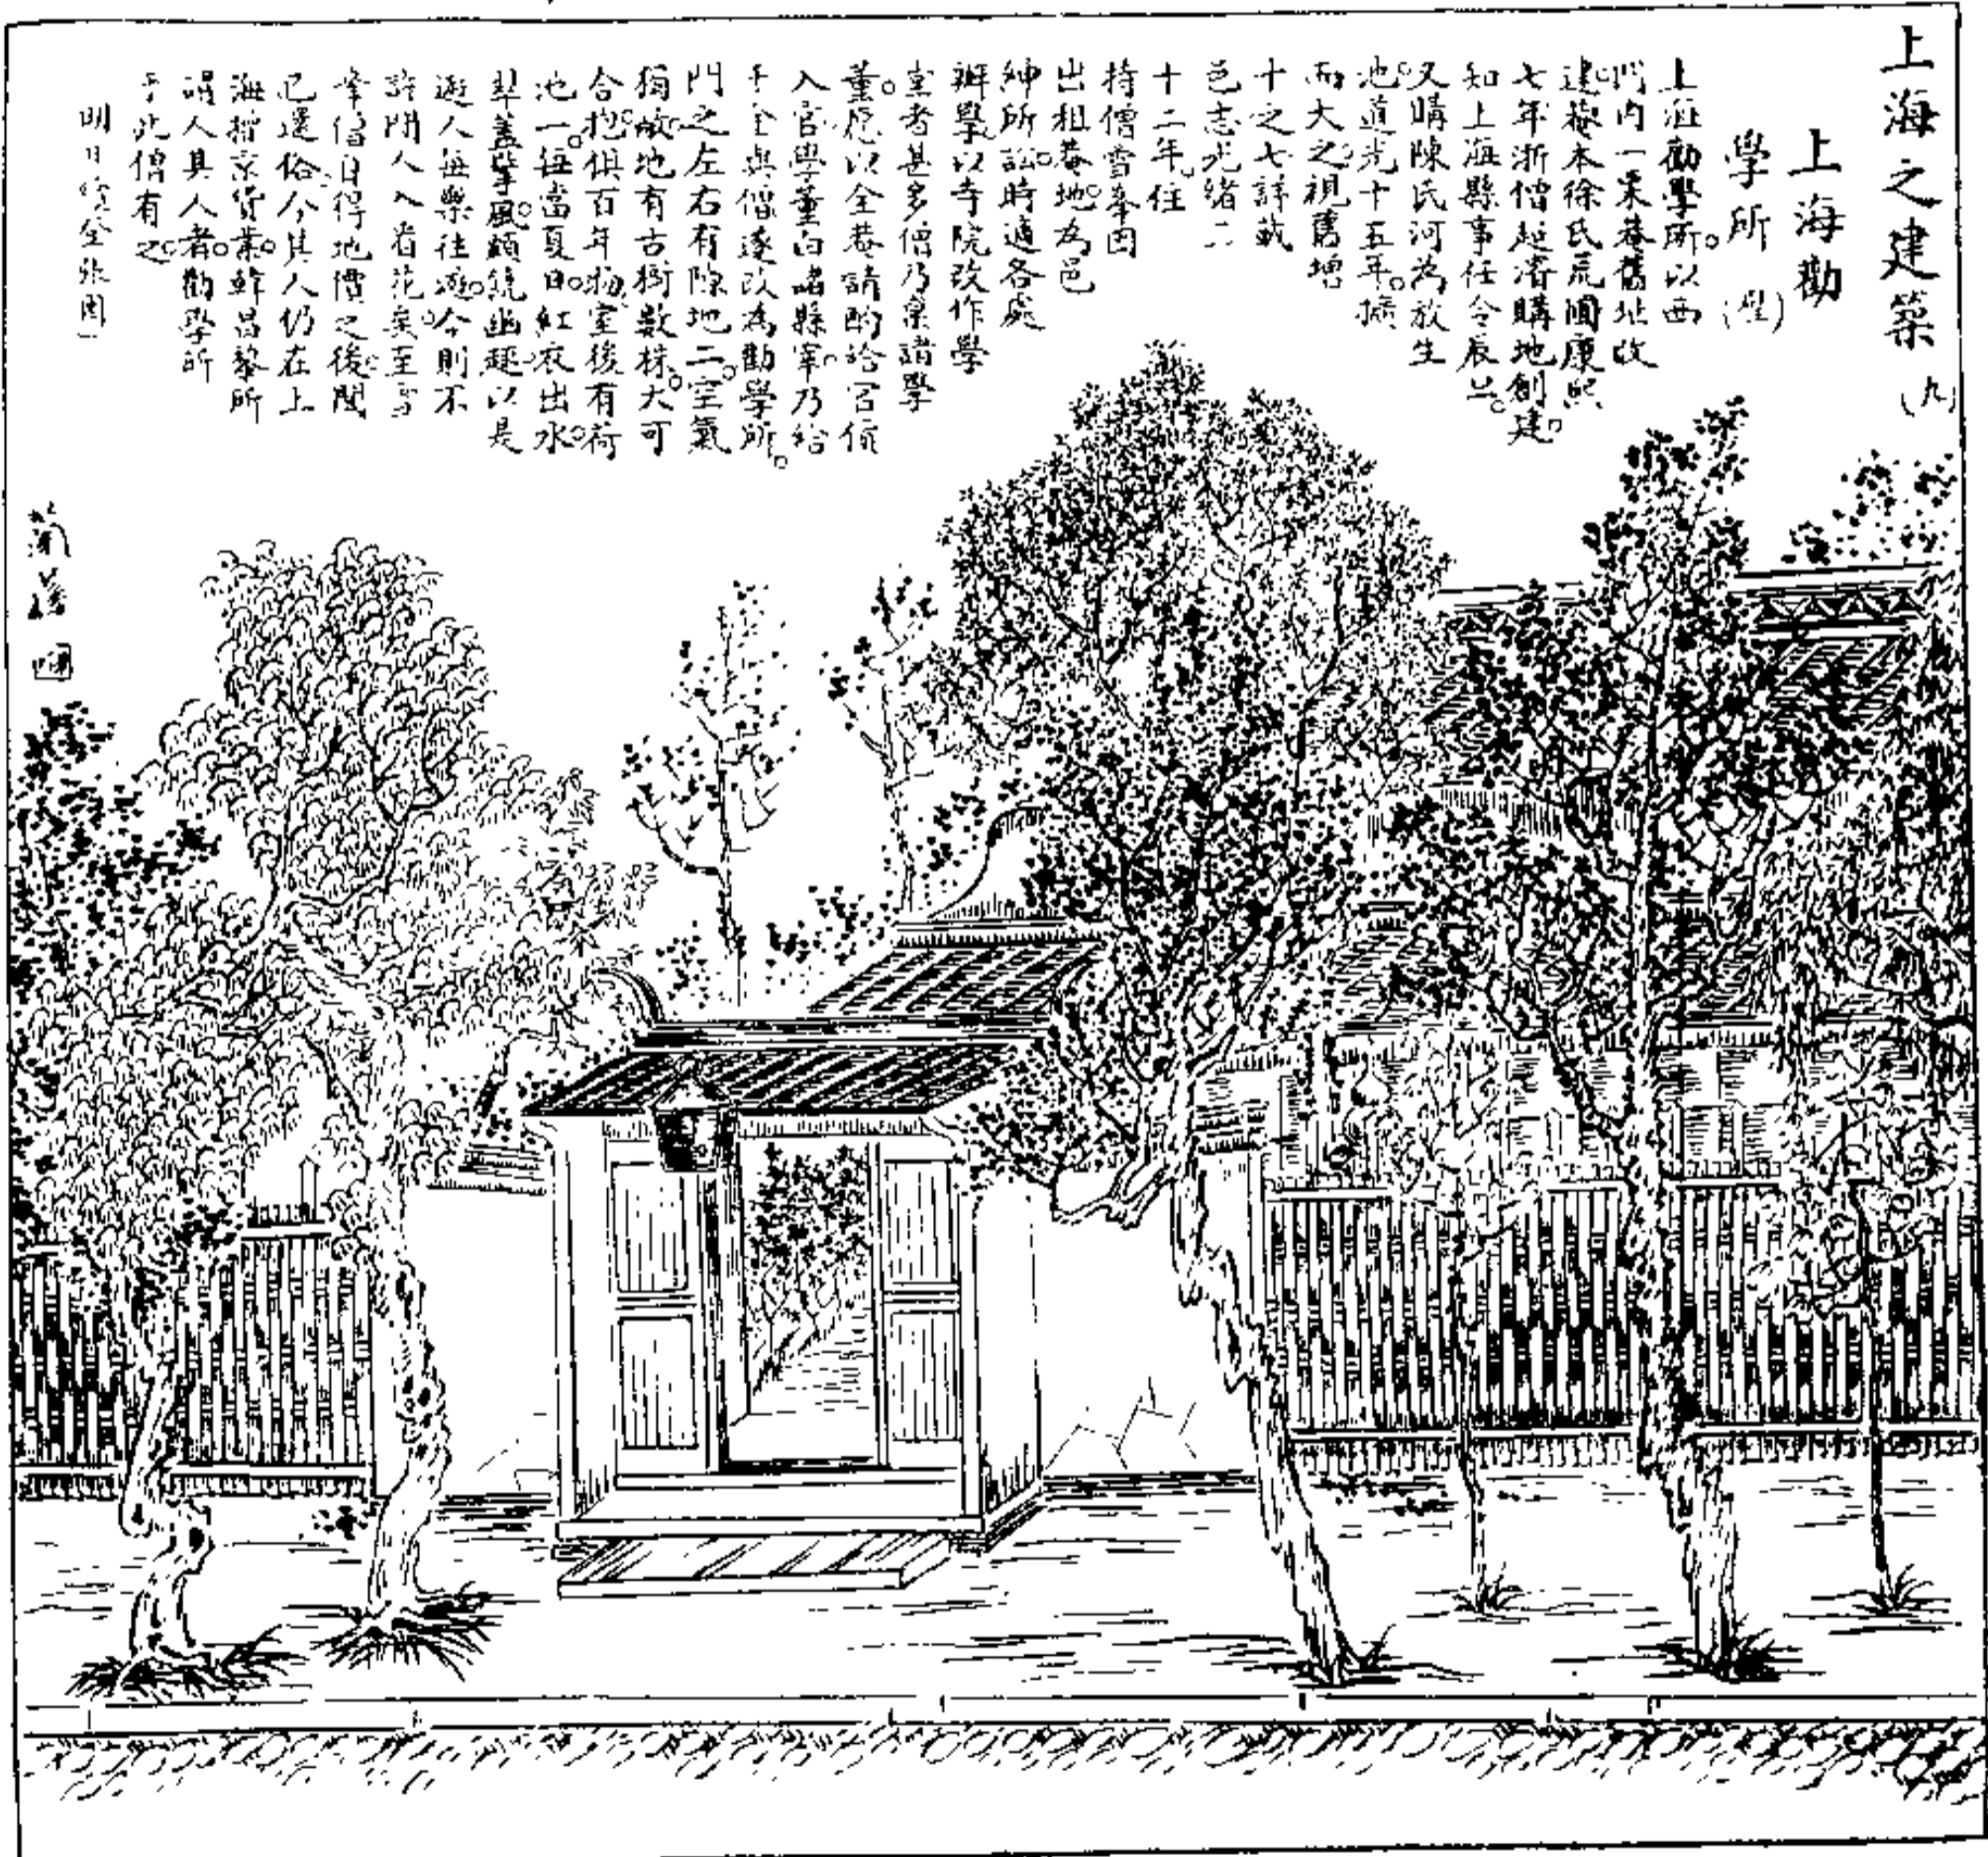 上海之建築 (九)
上海勸
學所
上海勸學所。以西
門內一粟菴舊址改
建。菴本徐氏荒圃。康熙
七年浙僧超濬購地創建。
知上海縣事任令辰旦。
又購陳氏河為放生
池。道光十五年。擴
而大之。視舊增
十之七。詳載
邑志。光緒二
十二年。住
持僧雪峯因
出租菴地。為邑
紳所訟。時適各處
辦學。以寺院改作學
堂者甚多。僧乃稟諸學
董。愿以全菴請酌給官價
入官。學董白諸縣宰。乃給
千金與僧。遂改為勸學所。
門之左右有隙地二。空氣
獨敞。地有古樹數株。大可
合抱。俱百年物。室後有荷
池一。每當夏日。紅衣出水。
翠蓋擎風。頗饒幽趣。以是
遊人每樂往遊。今則不
許閒人入看花矣。至雪
峯僧自得地價之後。聞
已還俗。今其人仍在上
海操京貨業。韓昌黎所
謂人其人者。勸學所
于此僧有之。
明日 全張園